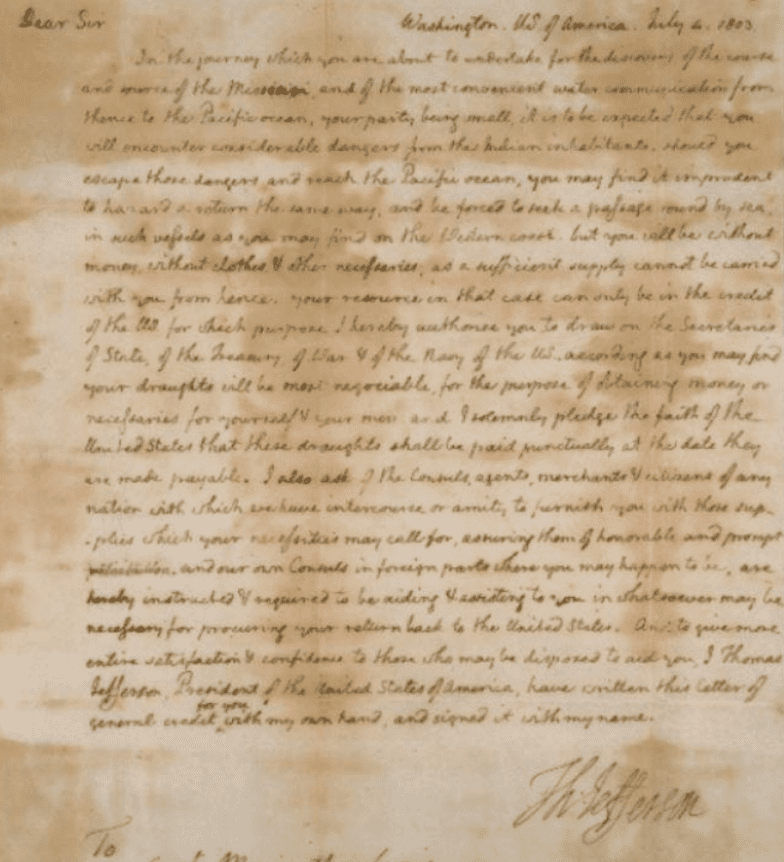 Dear Sir
Washington. US. of America. July 4. 1803.
In the journey which you are about to undertake for the discovery of the course
and source of the Missisipi, and of the most convenient water communication from
thence to the Pacific ocean, your party being small, it is to be expected that you
will encounter considerable dangers from the Indian inhabitants. should you
escape those dangers and reach the Pacific ocean, you may find it imprudent
to hazard a return the same way, and be forced to seek a passage round by sea,
in such vessels as you may find on the Western coast. but you will be without
money, without clothes, & other necessaries; as a sufficient supply cannot be carried
with you from hence. your resource in that case can only be in the credit
of the US. for which purpose I hereby authorise you to draw on the Secretaries
of State, of the Treasury, of War & of the Navy of the US. according as you may find
your draughts will be most negociable, for the purpose of obtaining money or
necessaries for yourself & your men: and I solemnly pledge the faith of the
United States that these draughts shall be paid punctually at the date they
are made payable. I also ask of the Consuls, agents, merchants & citizens of any
nation with which we have intercourse or amity to furnish you with those sup-
-plies which your necessities may call for, assuring them of honorable and prompt
retribution. and our own Consuls in foreign parts where you may happen to be, are
hereby instructed & required to be aiding & assisting to you in whatsoever may be
necessary for procuring your return back to the United States. And to give more
entire satisfaction & confidence to those who may be disposed to aid you, I Thomas
Jefferson, President of the United States of America, have written this letter of
general credit for you with my own hand, and signed it with my name.
Th: Jefferson
To